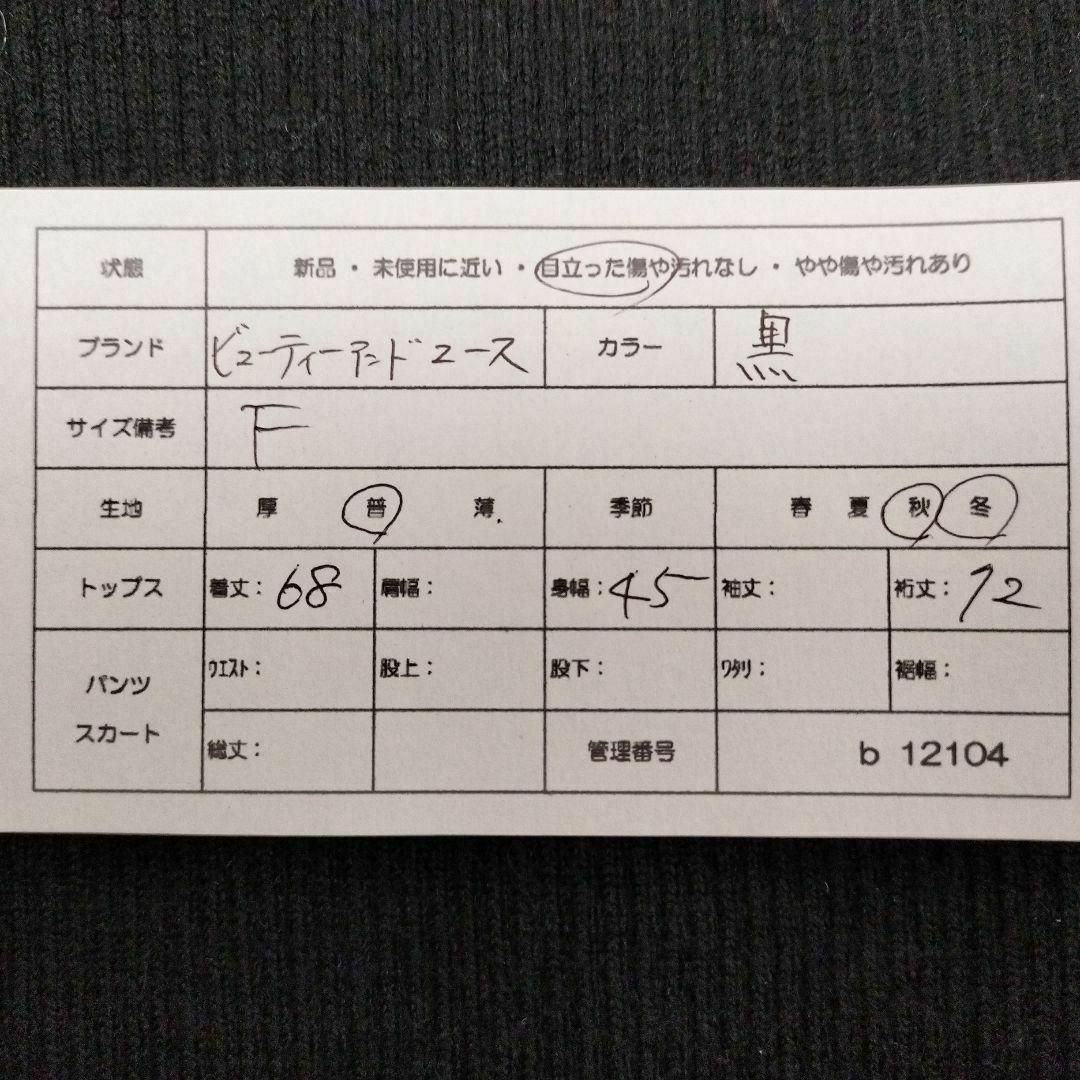 状態 新品・未使用に近い・目立った傷や汚れなし・やや傷や汚れあり
ブランド ビューティーアンドユース カラー 黒
サイズ備考 F
生地 厚 普 薄 季節 春 夏 秋 冬
トップス 着丈：68 肩幅： 身幅：45 袖丈： 裄丈：72
パンツ スカート
ウエスト： 股上： 股下： ワタリ： 裾幅：
総丈： 管理番号 b 12104